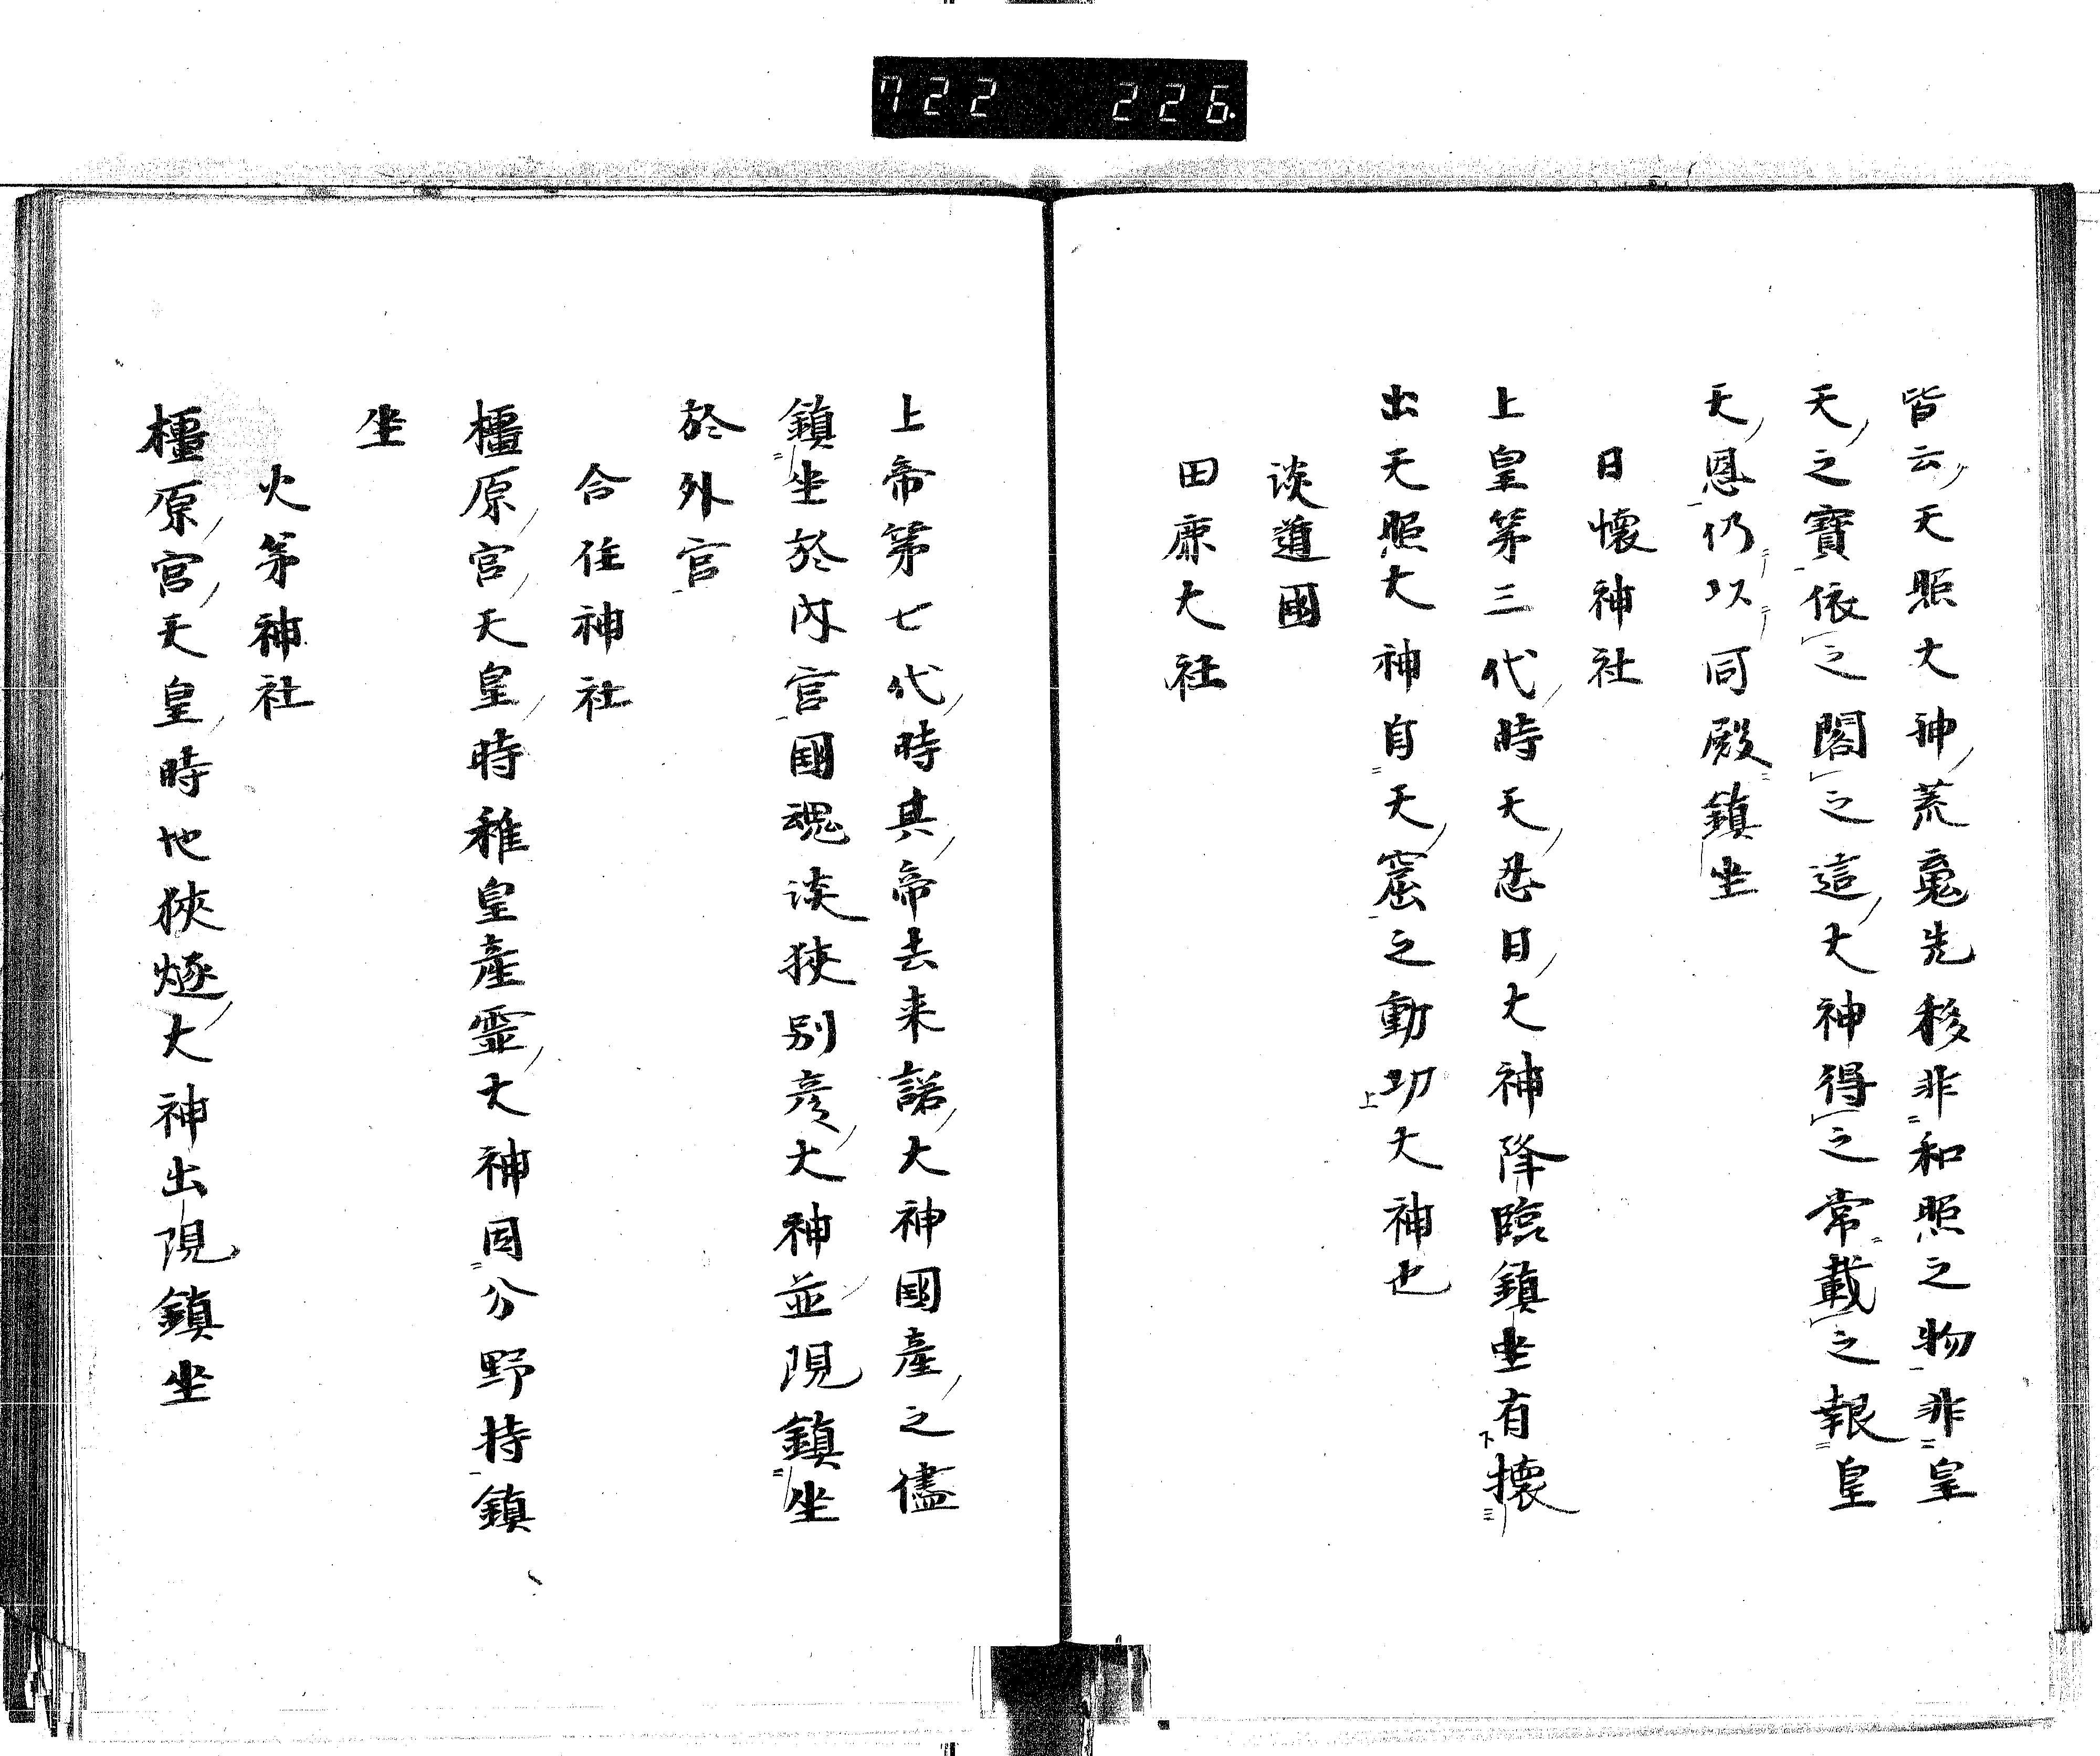 722 226.
皆云天照大神荒魂先移非和照之物非皇
天之寶依之閣之這大神得之常載之報皇
天恩仍以同殿鎮坐
日懷神社
上皇第三代時天忍日大神降臨鎮坐有懷
出天照大神自天窟之動功大神也
淡道國
田康大社
上帝第七代時其帝去来諾大神國產之儘
鎮坐於内宮國魂淡狹別彥大神並現鎮坐
於外宮
合住神社
橿原宮天皇時稚皇產靈大神因分野持鎮
坐
火茅神社
橿原宮天皇時地狹燧大神出現鎮坐